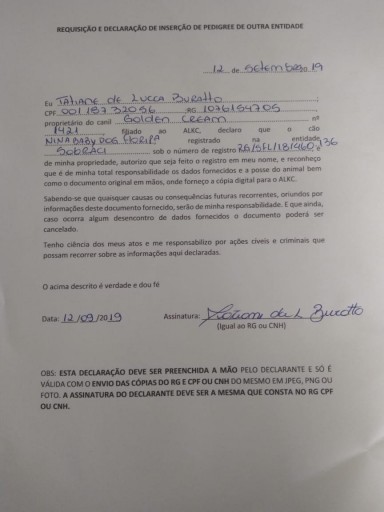 REQUISIÇÃO E DECLARAÇÃO DE INSERÇÃO DE PEDIGREE DE OUTRA ENTIDADE
12 de setembro 19
Eu TATIANE de LUCCA BURATTO
CPF 001 187 320 56 RG 1076154705
proprietário do canil GOLDEN CREAM nº
1421, filiado ao ALKC, declaro que o cão
NINA BABY DOG FLORIPA registrado na entidade
SOBRACI sob o número de registro
de minha propriedade, autorizo que seja feito o registro em meu nome, e reconheço
que é de minha total responsabilidade os dados fornecidos e a posse do animal bem
como o documento original em mãos, onde forneço a cópia digital para o ALKC.
Sabendo-se que quaisquer causas ou consequências futuras recorrentes, oriundos por
informações deste documento fornecido, serão de minha responsabilidade. E que ainda,
caso ocorra algum desencontro de dados fornecidos o documento poderá ser
cancelado.
Tenho ciência dos meus atos e me responsabilizo por ações cíveis e criminais que
possam recorrer sobre as informações aqui declaradas.
O acima descrito é verdade e dou fé
Data: 12/09/2019 Assinatura: Tatiane de L Buratto
(Igual ao RG ou CNH)
OBS: ESTA DECLARAÇÃO DEVE SER PREENCHIDA A MÃO PELO DECLARANTE E SÓ É
VÁLIDA COM O ENVIO DAS CÓPIAS DO RG E CPF OU CNH DO MESMO EM JPEG, PNG OU
FOTO. A ASSINATURA DO DECLARANTE DEVE SER A MESMA QUE CONSTA NO RG CPF
OU CNH.